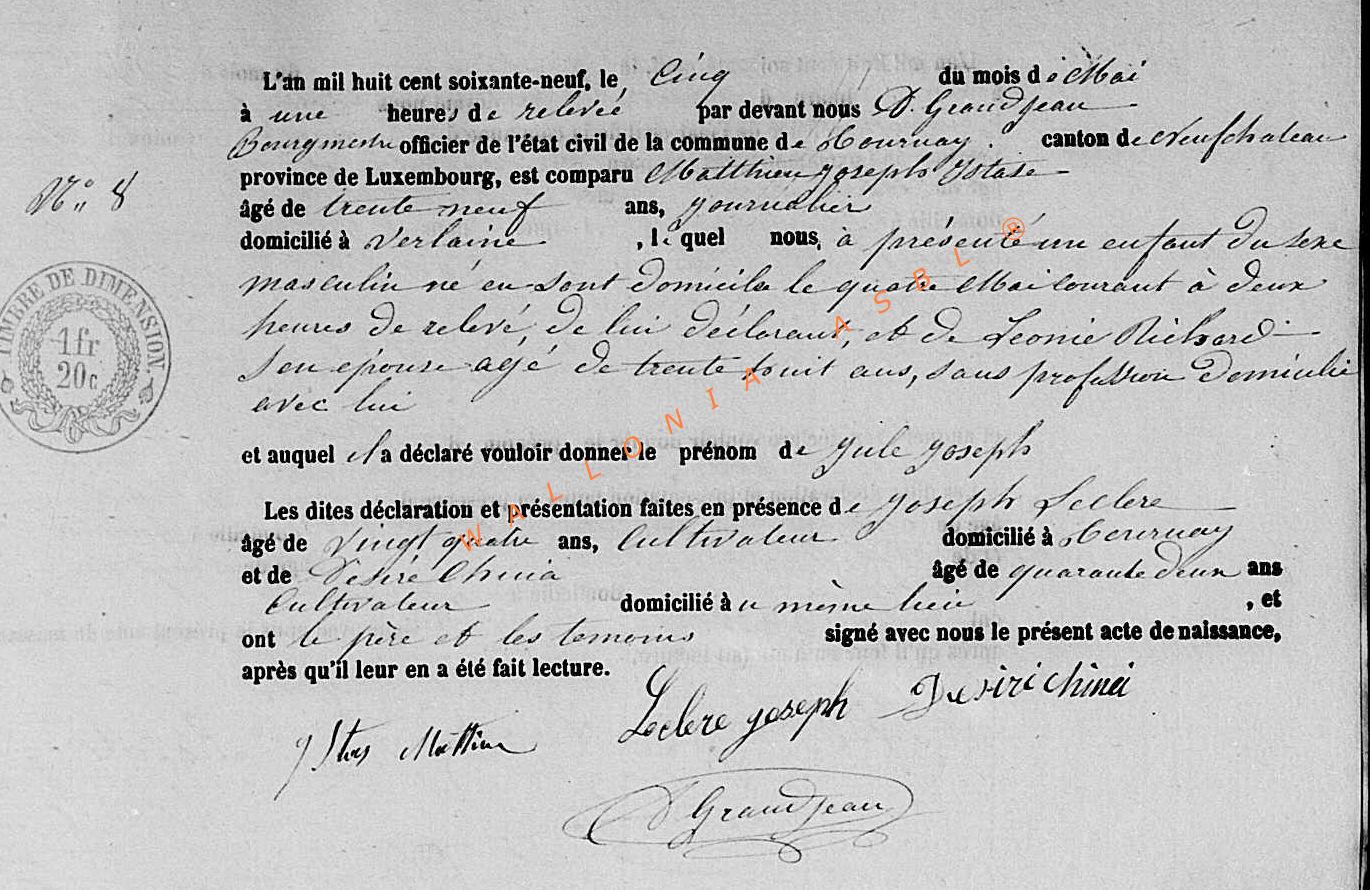 L'an mil huit cent soixante-neuf, le Cinq du mois de Mai
à une heures de relevée par devant nous D. Grandjean
Bourgmestre officier de l'état civil de la commune de Tournay. canton de Neufchateau
province de Luxembourg, est comparu Matthieu Joseph Istase
N° 8
âgé de trente neuf ans, journalier
domicilié à Verlaine, le quel nous, à présenté un enfant du sexe
masculin né en sont domicile le quatre Mai courant à deux
heures de relevé de lui déclarant, et de Leonie Richard
son épouse agé de trente huit ans, sans profession domicilié
avec lui
TIMBRE DE DIMENSION.
1 fr
20c
et auquel il a déclaré vouloir donner le prénom de Jule Joseph
Les dites déclaration et présentation faites en présence de Joseph Leclere
âgé de vingt quatre ans, Cultivateur domicilié à Tournay
et de Désiré Chinia âgé de quarante deux ans
Cultivateur domicilié à u même lieu, et
ont le père et les temoins signé avec nous le présent acte de naissance,
après qu'il leur en a été fait lecture.
Leclere joseph Desiri chinai
Mattieu
D Grandjean
WALLONIA ASBL ®